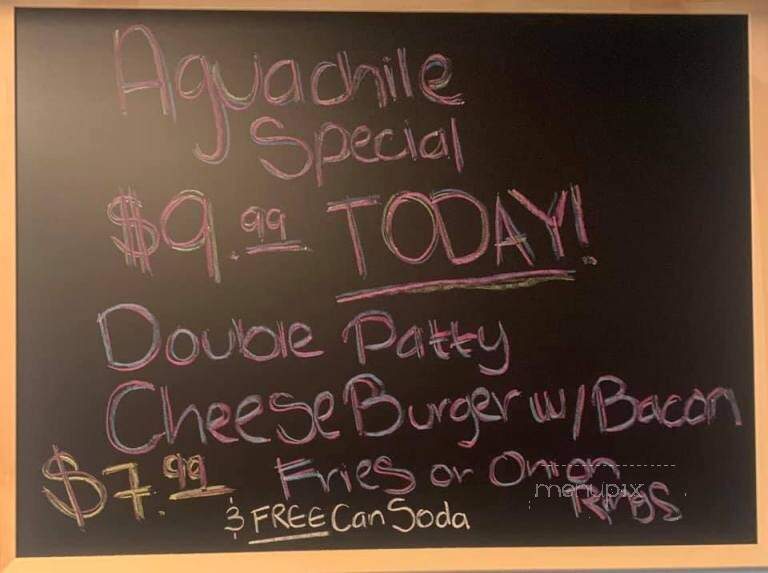 Aguachile
Special
$9.99 TODAY!
Double Patty
CheeseBurger w/Bacon
$7.99 Fries or Onion
Rings
& FREE Can Soda
menupix